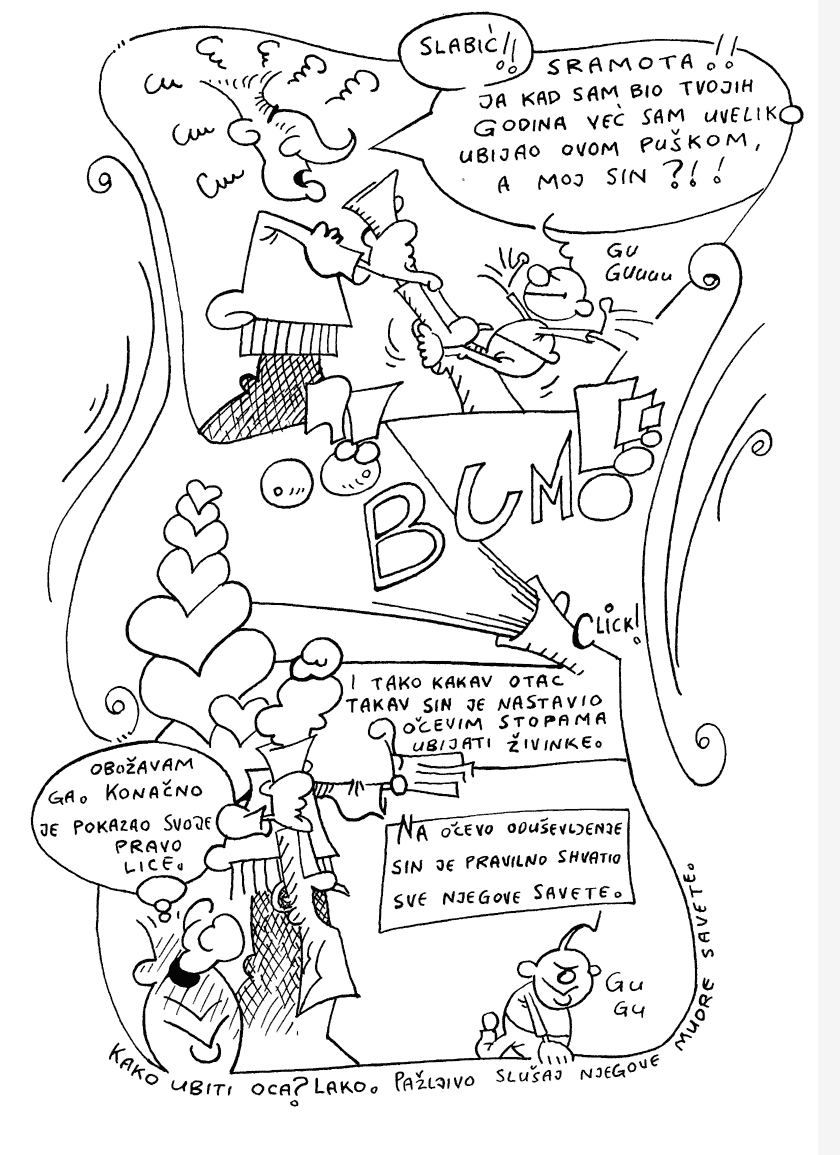 SLABIĆ!!
SRAMOTA!!
JA KAD SAM BIO TVOJIH
GODINA VEĆ SAM UVELIKO
UBIJAO OVOM PUŠKOM,
A MOJ SIN ?!!
GU
GUUUU
BUM!!!
CLICK!
I TAKO KAKAV OTAC
TAKAV SIN JE NASTAVIO
OČEVIM STOPAMA
UBIJATI ŽIVINKE.
OBOŽAVAM
GA. KONAČNO
JE POKAZAO SVOJE
PRAVO
LICE.
NA OČEVO ODUŠEVLJENJE
SIN JE PRAVILNO SHVATIO
SVE NJEGOVE SAVETE.
GU
GU
KAKO UBITI OCA? LAKO. PAŽLJIVO SLUŠAJ NJEGOVE MUDRE SAVETE.